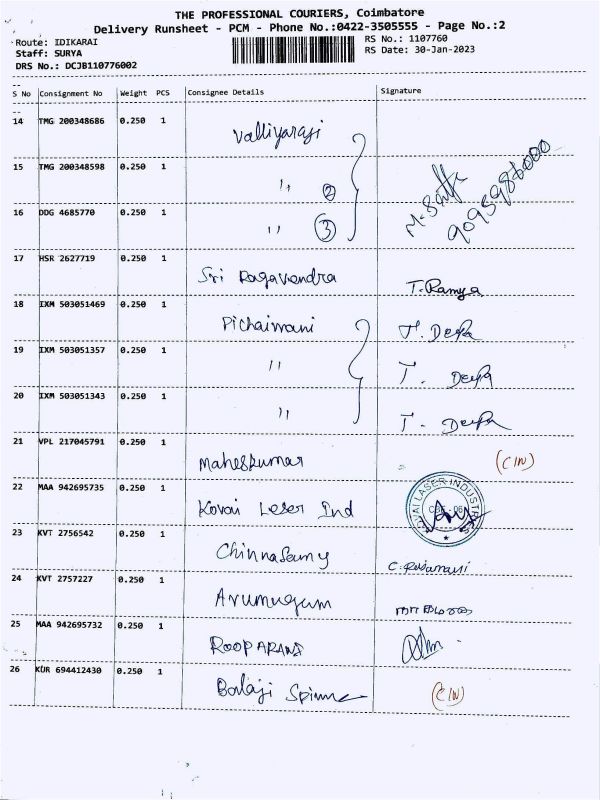 THE PROFESSIONAL COURIERS, Coimbatore
Delivery Runsheet - PCM - Phone No.:0422-3505555 - Page No.:2
Route: IDIKARAI
RS No.: 1107760
Staff: SURYA
RS Date: 30-Jan-2023
DRS No.: DCJB110776002
S No Consignment No Weight PCS Consignee Details Signature
14 TMG 200348686 0.250 1 Valliyaraji
15 TMG 200348598 0.250 1 " ②
16 DDG 4685770 0.250 1 " ③
17 HSR 2627719 0.250 1 Sri Ragavendra T. Ramya
18 IXM 503051469 0.250 1 Pichaimani T. Deepa
19 IXM 503051357 0.250 1 " T. Deepa
20 IXM 503051343 0.250 1 " T. Deepa
21 VPL 217045791 0.250 1 Maheskumar (CIN)
22 MAA 942695735 0.250 1 Kovai Laser Ind
23 KVT 2756542 0.250 1 Chinnasamy
24 KVT 2757227 0.250 1 Arumugam
25 MAA 942695732 0.250 1 ROOPARANI
26 KUR 694412430 0.250 1 Balaji (CIN)